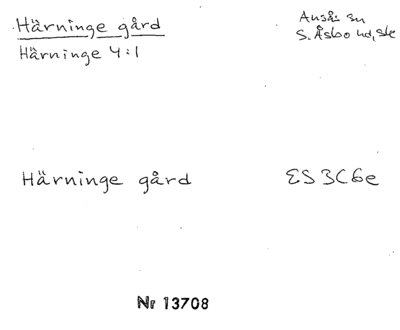 Härninge gård
Härninge 4:1
S. Åsbo hd, Sk
Härninge gård
ES 3C6e
Nr 13708